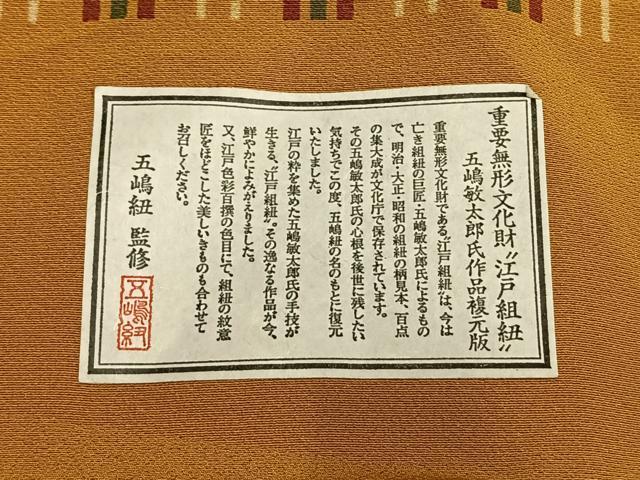 重要無形文化財"江戸組紐"
五嶋敏太郎氏作品複元版
重要無形文化財である"江戸組紐"は、今は
亡き組紐の巨匠・五嶋敏太郎氏によるもの
で、明治・大正・昭和の組紐の柄見本、百点
の集大成が文化庁で保存されています。
その五嶋敏太郎氏の心根を後世に残したい
気持ちでこの度、五嶋紐の名のもとに復元
いたしました。
江戸の粋を集めた五嶋敏太郎氏の手技が
生きる、"江戸組紐"。その逸なる作品が今、
鮮やかによみがえりました。
又、江戸色彩百撰の色目にて、組紐の紋意
匠をほどこした美しいきものも合わせて
お召しください。
五嶋紐 監修
五嶋紐